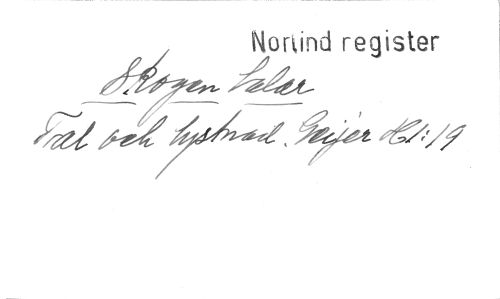 Norlind register
Skogen talar
Tal och tystnad. Geijer H1:19